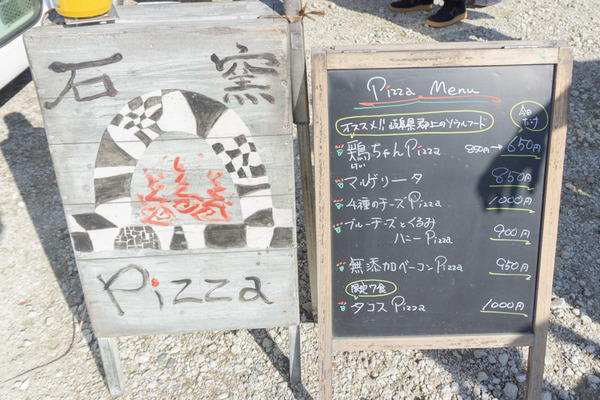 石窯
Pizza
Pizza Menu
オススメ!! 岐阜県郡上のソウルフード
今日だけ
鶏ちゃんPizza 850円→650円
けい
マルゲリータ 850円
4種のチーズPizza 1000円
ブルーチーズとくるみ
ハニーPizza 900円
無添加ベーコンPizza 950円
限定7食
タコスPizza 1000円